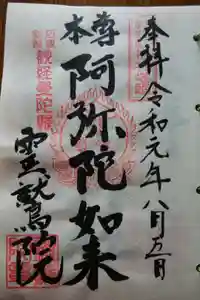 奉拝 令和元年八月五日
本尊
阿弥陀如来
観経曼陀羅
霊鷲院